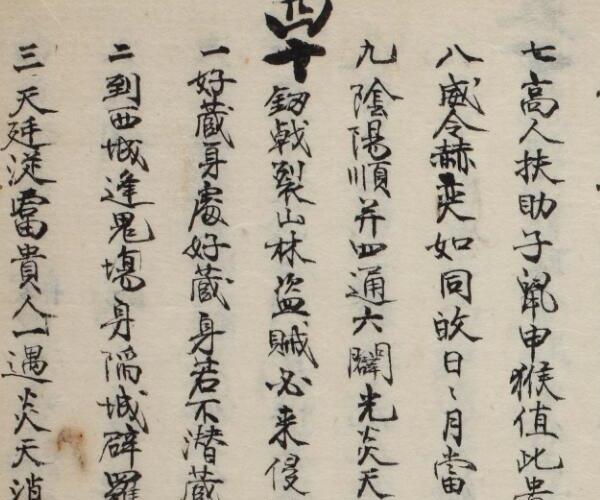 七高人扶助子鼠申猴值此
八威令赫奕如同皎日〻月當
九陰陽順并四通六闢光炎天
四十釼戟裂山林盜賊必来侵
一好蔵身處好蔵身若不潜蔵
二到西城逢鬼塲身陷城辟羅
三天廷從富貴人一遇炎天消